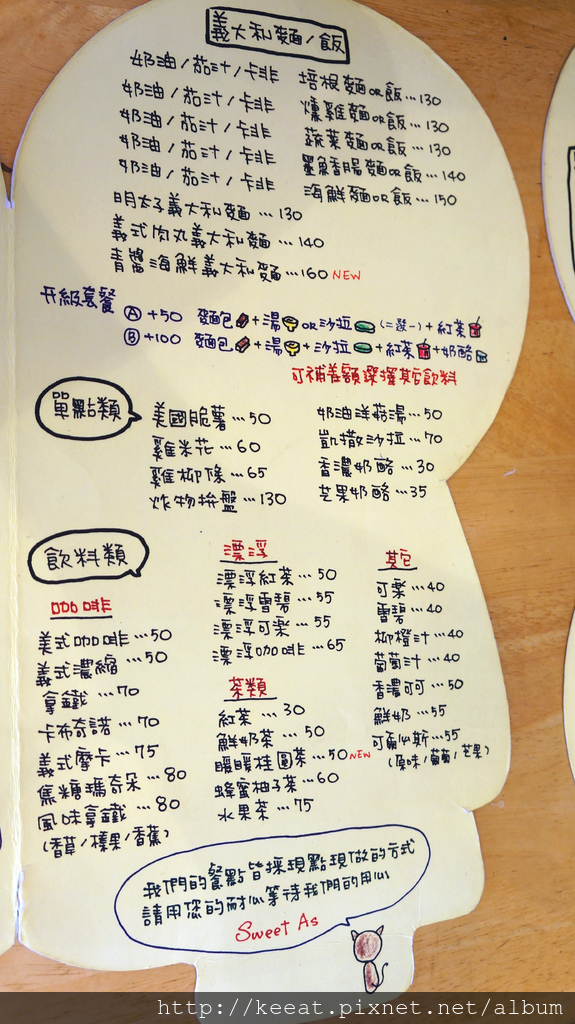 義大利麵/飯
奶油/茄汁/卡非 培根麵or飯...130
奶油/茄汁/卡非 燻雞麵or飯...130
奶油/茄汁/卡非 蔬菜麵or飯...130
奶油/茄汁/卡非 墨魚香腸麵or飯...140
奶油/茄汁/卡非 海鮮麵or飯...150
明太子義大利麵...130
義式肉丸義大利麵...140
青醬海鮮義大利麵...160 NEW
升級套餐
A +50 麵包+湯or沙拉(二選一)+紅茶
B +100 麵包+湯+沙拉+紅茶+奶酪
可補差額選擇其它飲料
單點類
美國脆薯...50
雞米花...60
雞柳條...65
炸物拚盤...130
奶油洋菇湯...50
凱撒沙拉...70
香濃奶酪...30
芒果奶酪...35
飲料類
咖啡
美式咖啡...50
義式濃縮...50
拿鐵...70
卡布奇諾...70
義式摩卡...75
焦糖瑪奇朵...80
風味拿鐵...80
(香草/榛果/香蕉)
漂浮
漂浮紅茶...50
漂浮雪碧...55
漂浮可樂...55
漂浮咖啡...65
茶類
紅茶...30
鮮奶茶...50
暖暖桂圓茶...50 NEW
蜂蜜柚子茶...60
水果茶...75
其它
可樂...40
雪碧...40
柳橙汁...40
葡萄汁...40
香濃可可...50
鮮奶...55
可爾必斯...55
(原味/葡萄/芒果)
我們的餐點皆採現點現做的方式
請用您的耐心等待我們的用心
Sweet As
http://keeat.pixnet.net/album